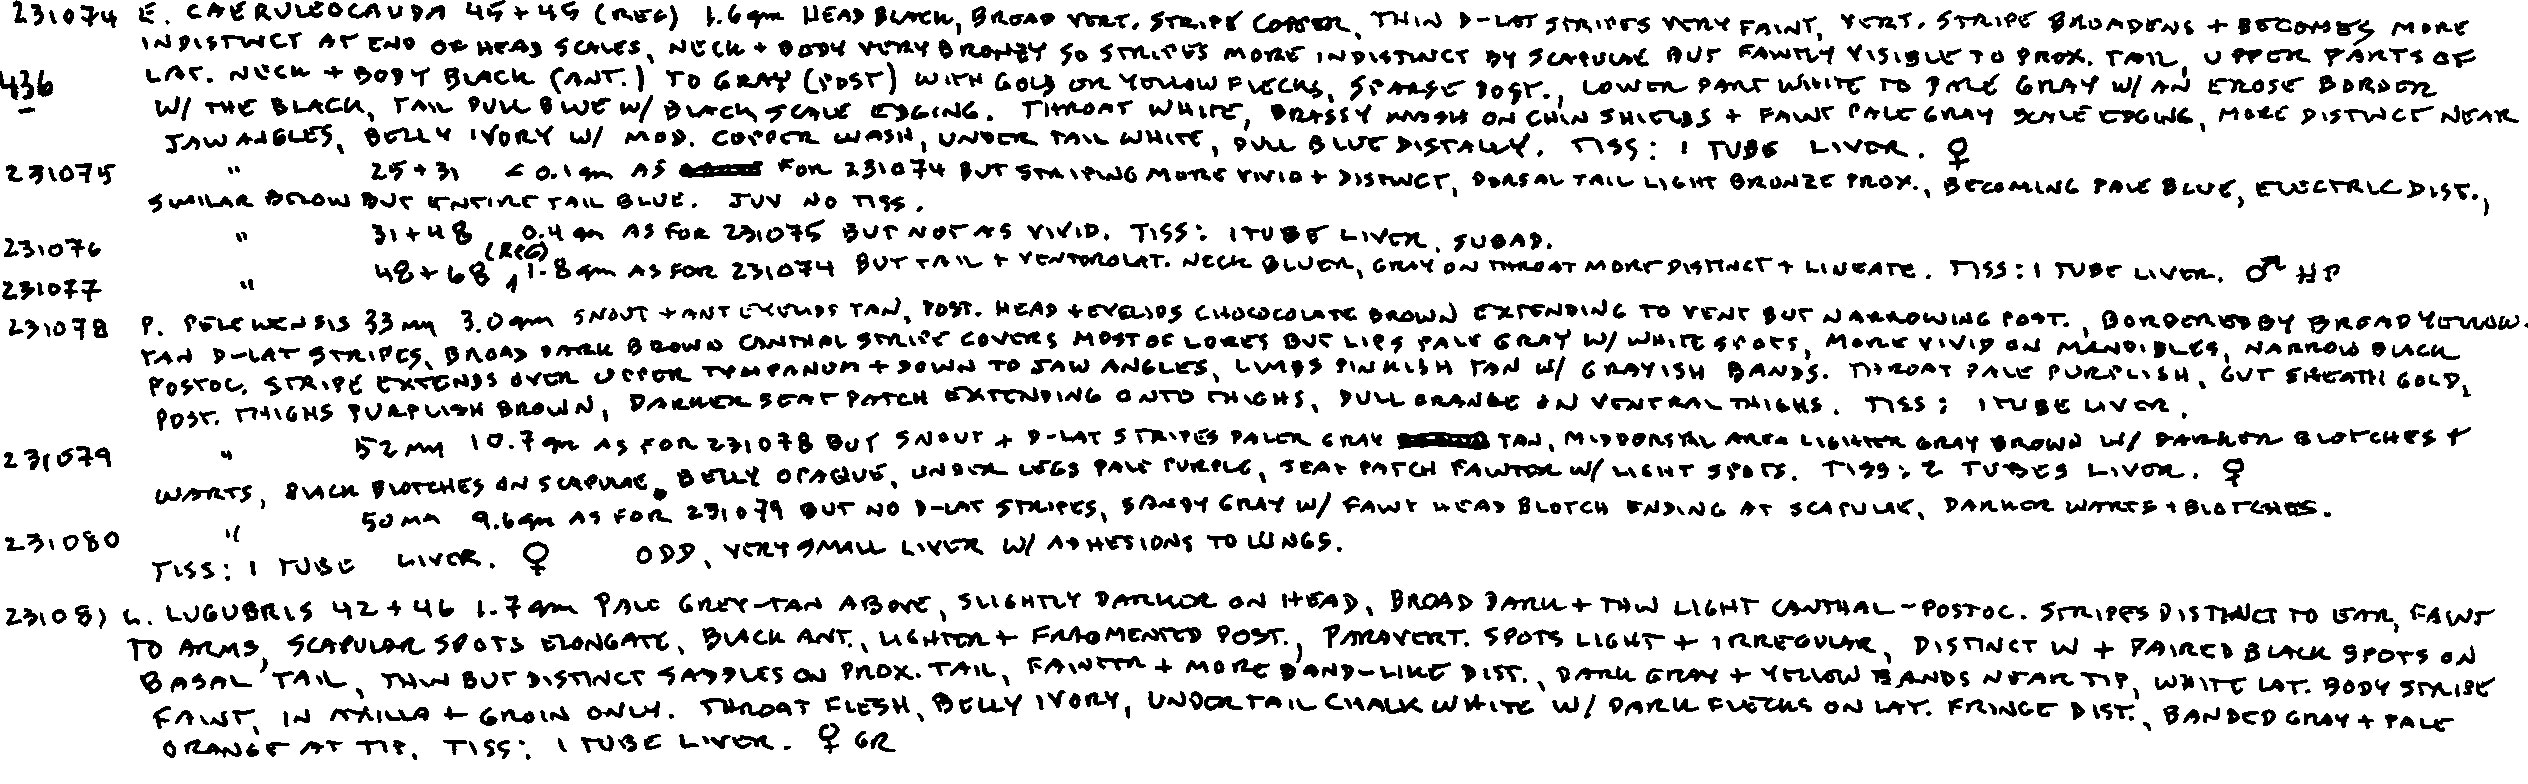 231074 E. CAERULEOCAUDA 45+45 (REG) 1.6gm HEAD BLACK, BROAD VERT. STRIPE COPPER, THIN D-LAT STRIPES VERY FAINT, VERT. STRIPE BROADENS + BECOMES MORE
INDISTINCT AT END OF HEAD SCALES, NECK + BODY VERY BRONZY SO STRIPES MORE INDISTINCT BY SCAPULAE BUT FAINTLY VISIBLE TO PROX. TAIL, UPPER PARTS OF
436 LAT. NECK + BODY BLACK (ANT.) TO GRAY (POST) WITH GOLD OR YELLOW FLECKS, SPARSE POST., LOWER PART WHITE TO PALE GRAY W/ AN EROSE BORDER
W/ THE BLACK, TAIL DULL BLUE W/ BLACK SCALE EDGING. THROAT WHITE, BRASSY WASH ON CHIN SHIELDS + FAINT PALE GRAY SCALE EDGING, MORE DISTINCT NEAR
JAW ANGLES, BELLY IVORY W/ MOD. COPPER WASH, UNDER TAIL WHITE, DULL BLUE DISTALLY. TISS: 1 TUBE LIVER. ♀
231075 " 25+31 <0.1gm AS FOR 231074 BUT STRIPING MORE VIVID + DISTINCT, DORSAL TAIL LIGHT BRONZE PROX., BECOMING PALE BLUE, ELECTRIC DIST.,
SIMILAR BELOW BUT ENTIRE TAIL BLUE. JUV NO TISS.
231076 " 31+48 0.4gm AS FOR 231075 BUT NOT AS VIVID. TISS: 1 TUBE LIVER, SUBAD.
231077 " 48+68 (REG), 1.8gm AS FOR 231074 BUT TAIL + VENTROLAT. NECK BLUER, GRAY ON THROAT MORE DISTINCT + LINEATE. TISS: 1 TUBE LIVER. ♂ HP
231078 P. PELEWENSIS 33mm 3.0gm SNOUT + ANT EYELIDS TAN, POST. HEAD + EYELIDS CHOCOCOLATE BROWN EXTENDING TO VENT BUT NARROWING POST., BORDERED BY BROAD YELLOW-
TAN D-LAT STRIPES, BROAD DARK BROWN CANTHAL STRIPE COVERS MOST OF LORES BUT LIPS PALE GRAY W/ WHITE SPOTS, MORE VIVID ON MANDIBLES, NARROW BLACK
POSTOC. STRIPE EXTENDS OVER UPPER TYMPANUM + DOWN TO JAW ANGLES, LIMBS PINKISH TAN W/ GRAYISH BANDS. THROAT PALE PURPLISH, GUT SHEATH GOLD,
POST. THIGHS PURPLISH BROWN, DARKER SEAT PATCH EXTENDING ONTO THIGHS, DULL ORANGE ON VENTRAL THIGHS. TISS: 1 TUBE LIVER.
231079 " 52mm 10.7gm AS FOR 231078 BUT SNOUT + D-LAT STRIPES PALER GRAY TAN, MIDDORSAL AREA LIGHTER GRAY BROWN W/ DARKER BLOTCHES +
WARTS, BLACK BLOTCHES ON SCAPULAE. BELLY OPAQUE, UNDER LEGS PALE PURPLE, SEAT PATCH FAINTER W/ LIGHT SPOTS. TISS: 2 TUBES LIVER. ♀
231080 " 50mm 9.6gm AS FOR 231079 BUT NO D-LAT STRIPES, SANDY GRAY W/ FAINT HEAD BLOTCH ENDING AT SCAPULAE, DARKER WARTS + BLOTCHES.
TISS: 1 TUBE LIVER. ♀ ODD, VERY SMALL LIVER W/ ADHESIONS TO LUNGS.
231081 L. LUGUBRIS 42+46 1.7gm PALE GREY-TAN ABOVE, SLIGHTLY DARKER ON HEAD, BROAD DARK + THIN LIGHT CANTHAL-POSTOC. STRIPES DISTINCT TO EAR, FAINT
TO ARMS, SCAPULAR SPOTS ELONGATE, BLACK ANT., LIGHTER + FRAGMENTED POST., PARAVERT. SPOTS LIGHT + IRREGULAR, DISTINCT W + PAIRED BLACK SPOTS ON
BASAL TAIL, THIN BUT DISTINCT SADDLES ON PROX. TAIL, FAINTER + MORE BAND-LIKE DIST., DARK GRAY + YELLOW BANDS NEAR TIP, WHITE LAT. BODY STRIPE
FAINT, IN AXILLA + GROIN ONLY. THROAT FLESH, BELLY IVORY, UNDERTAIL CHALK WHITE W/ DARK FLECKS ON LAT. FRINGE DIST., BANDED GRAY + PALE
ORANGE AT TIP, TISS: 1 TUBE LIVER. ♀ GR